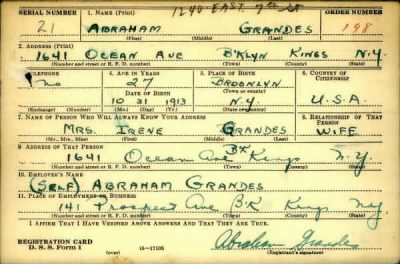 SERIAL NUMBER 1. NAME (Print) 1240 EAST 7th St ORDER NUMBER
21 ABRAHAM GRANDES 198
(First) (Middle) (Last)
2. ADDRESS (Print)
1641 OCEAN AVE B'KLYN KINGS N.Y.
(Number and street or R. F. D. number) (Town) (County) (State)
3. TELEPHONE 4. AGE IN YEARS 5. PLACE OF BIRTH 6. COUNTRY OF CITIZENSHIP
No 27 BROOKLYN
DATE OF BIRTH (Town or county)
10 31 1913 N.Y. U.S.A.
(Exchange) (Number) (Mo.) (Day) (Yr.) (State or country)
7. NAME OF PERSON WHO WILL ALWAYS KNOW YOUR ADDRESS 8. RELATIONSHIP OF THAT PERSON
MRS. IRENE GRANDES WIFE
(Mr., Mrs., Miss) (First) (Middle) (Last)
9. ADDRESS OF THAT PERSON
1641 Ocean Ave BK Kings N.Y.
(Number and street or R. F. D. number) (Town) (County) (State)
10. EMPLOYER'S NAME
(SELF) ABRAHAM GRANDES
11. PLACE OF EMPLOYMENT OR BUSINESS
141 Prospect Ave B'K Kings N.Y.
(Number and street or R. F. D. number) (Town) (County) (State)
I AFFIRM THAT I HAVE VERIFIED ABOVE ANSWERS AND THAT THEY ARE TRUE.
REGISTRATION CARD
D. S. S. Form 1 16-17105 Abraham Grandes
(Registrant's signature)